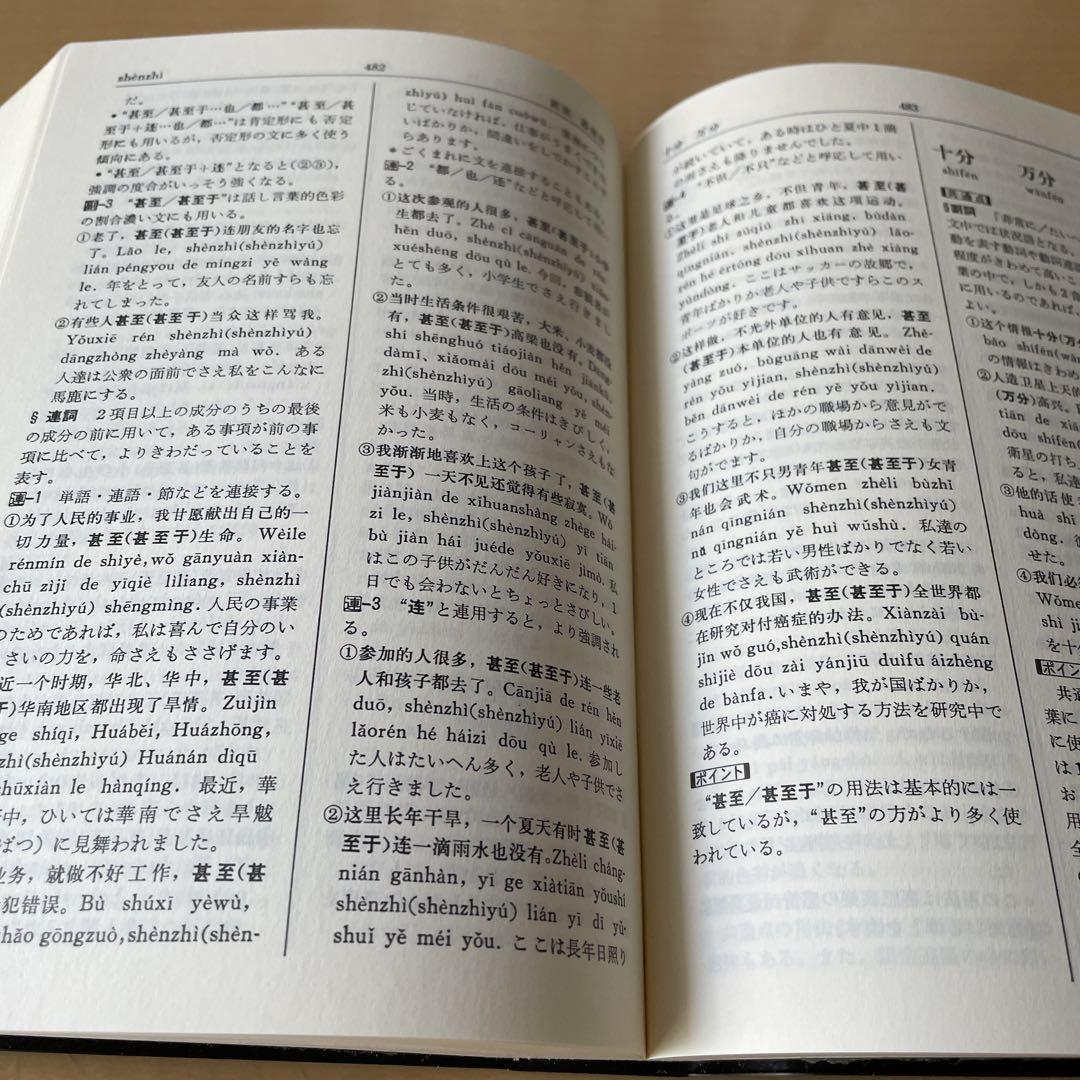 shènzhì
482
だ。
•“甚至/甚至于…也/都…”“甚至/甚
至于+连…也/都…”は肯定形にも否定
形にも用いるが，否定形の文に多く使う
傾向にある。
•“甚至/甚至于+连”となると(②③)，
強調の度合がいっそう強くなる。
副-3 “甚至/甚至于”は話し言葉的色彩
の割合濃い文にも用いる。
①老了，甚至(甚至于)连朋友的名字也忘
了。Lǎo le, shènzhì(shènzhìyú)
lián péngyou de míngzi yě wàng
le. 年をとって，友人の名前すらも忘
れてしまった。
②有些人甚至(甚至于)当众这样骂我。
Yǒuxiē rén shènzhì(shènzhìyú)
dāngzhòng zhèyàng mà wǒ. ある
人達は公衆の面前でさえ私をこんなに
馬鹿にする。
§ 連詞 2項目以上の成分のうちの最後
の成分の前に用いて，ある事項が前の事
項に比べて，よりきわだっていることを
表す。
連-1 単語・連語・節などを連接する。
①为了人民的事业，我甘愿献出自己的一
切力量，甚至(甚至于)生命。Wèile
rénmín de shìyè, wǒ gānyuàn xiàn-
chū zìjǐ de yīqiè lìliang, shènzhì
(shènzhìyú) shēngmìng. 人民の事業
のためであれば，私は喜んで自分のい
さいの力を，命さえもささげます。
近一个时期，华北、华中，甚至(甚
至于)华南地区都出现了旱情。Zuìjìn
ge shíqī, Huáběi, Huázhōng,
zhì(shènzhìyú) Huánán dìqū
chūxiàn le hànqíng. 最近，華
中，ひいては華南でさえ旱魃
ばつ）に見舞われました。
业务，就做不好工作，甚至(甚
犯错误。Bù shúxī yèwù,
hǎo gōngzuò, shènzhì(shèn-
zhìyú) huì fàn cuòwù.
じていなければ，仕事が
いばかりか，間違いをしでかす
らあります。
•ごくまれに文を連接することもある。
連-2 “都/也/还”などと呼応して
①这次参观的人很多，甚至(甚至于)小学
生都去了。Zhè cì cānguān de rén
hěn duō, shènzhì(shènzhìyú)
xuéshēng dōu qù le. 今回，参観者が
とても多く，小学生でさえ行きました
②当时生活条件很艰苦，大米、小麦都没
有，甚至(甚至于)高粱也没有。Dāng-
shí shēnghuó tiáojiàn hěn jiānkǔ,
dàmǐ、xiǎomài dōu méi yǒu,
zhì(shènzhìyú) gāoliang yě méi
yǒu. 当時，生活の条件はきびしく，
米も小麦もなく，コーリャンさえもな
かった。
③我渐渐地喜欢上这个孩子了，甚至(甚
至于) 一天不见还觉得有些寂寞。Wǒ
jiànjiàn de xǐhuanshàng zhège hái-
zi le, shènzhì(shènzhìyú) yī tiān
bù jiàn hái juéde yǒuxiē jìmò. 私
はこの子供がだんだん好きになり，1
日でも会わないとちょっとさびしい。
連-3 “连”と連用すると，より強調され
る。
①参加的人很多，甚至(甚至于)连一些老
人和孩子都去了。Cānjiā de rén hěn
duō, shènzhì(shènzhìyú) lián yīxiē
lǎorén hé háizi dōu qù le. 参加し
た人はたいへん多く，老人や子供でさ
え行きました。
②这里长年干旱，一个夏天有时甚至(甚
至于)连一滴雨水也没有。Zhèlǐ cháng-
nián gānhàn, yī ge xiàtiān yǒushí
shènzhì(shènzhìyú) lián yī dī yǔ-
shuǐ yě méi yǒu. ここは長年日照り
483
十分 万分
が続いていて，ある時はひと夏中1滴
の雨さえも降りませんでした。
“不但/不只”などと呼応して用い
る。
这里是足球之乡，不但青年，甚至(甚
至于)老人和儿童都喜欢这项运动。
Zhèlǐ shì zúqiú zhī xiāng, bùdàn
qīngnián, shènzhì(shènzhìyú) lǎo-
rén hé értóng dōu xǐhuan zhè xiàng
yùndòng. ここはサッカーの故郷で，
青年ばかりか老人や子供ですらこのス
ポーツが好きです。
②这样做，不光外单位的人有意见，甚至
(甚至于)本单位的人也有意见。Zhè-
yàng zuò, bùguāng wài dānwèi de
rén yǒu yìjian, shènzhì(shènzhìyú)
běn dānwèi de rén yě yǒu yìjian.
こうすると，ほかの職場から意見がで
るばかりか，自分の職場からさえも文
句がでます。
③我们这里不只男青年甚至(甚至于)女青
年也会武术。Wǒmen zhèlǐ bùzhǐ
nán qīngnián shènzhì(shènzhìyú)
nǚ qīngnián yě huì wǔshù. 私達の
ところでは若い男性ばかりでなく若い
女性でさえも武術ができる。
④现在不仅我国，甚至(甚至于)全世界都
在研究对付癌症的办法。Xiànzài bù-
jǐn wǒ guó, shènzhì(shènzhìyú) quán
shìjiè dōu zài yánjiū duìfu áizhèng
de bànfa. いまや，我が国ばかりか，
世界中が癌に対処する方法を研究中で
ある。
ポイント
“甚至/甚至于”の用法は基本的には一
致しているが，“甚至”の方がより多く使
われている。
十分 万分
shífēn wànfēn
共通点
§副詞 「非常に/たい
文中では状況語となる。
動を表す動詞や動詞連語
程度がきわめて高いこ
葉の中で，しかも2音
に用いるのであれば，
よい。
①这个情报十分(万分
bào shífēn(wànfē
の情報はきわめ
②人造卫星上天的
(万分)高兴。R
tiān de xi
dōu shífēn(
衛星の打ち
ると，私達
③他的话使
huà shǐ
dòng. 彼
せた。
④我们必
Wǒme
shí jì
を十
ポイン
共通
葉に
に使
は1
お
用
全